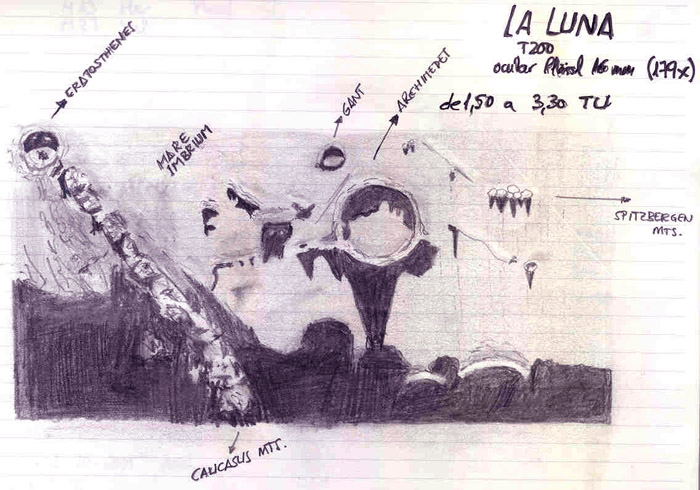 LA LUNA
T200
ocular Plössl 16 mm (179x)
de 1,50 a 3,30 TU
ERATOSTHENES
MARE
IMBRIUM
GANT
ARCHIMEDES
SPITZBERGEN
MTS.
CAUCASUS MTS.